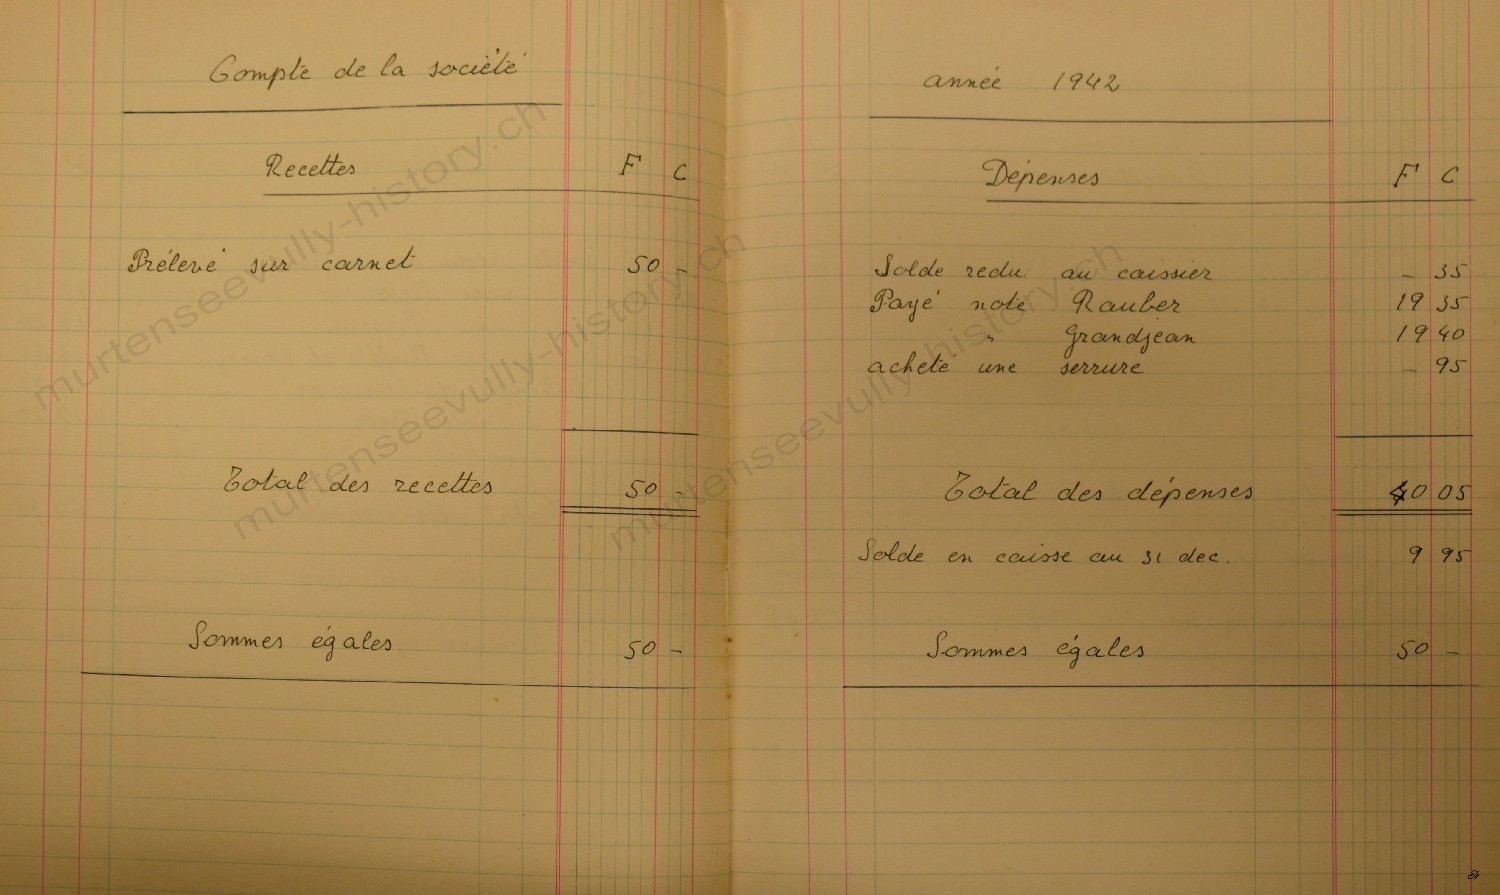 Compte de la société
Recettes F C
Prélevé sur carnet 50 -
Total des recettes 50 -
Sommes égales 50 -
année 1942
Dépenses F C
Solde redu au caissier - 35
Payé note Rauber 19 35
" Grandjean 19 40
acheté une serrure - 95
Total des dépenses 40 05
Solde en caisse au 31 dec. 9 95
Sommes égales 50 -
murtenseevully-history.ch
murtenseevully-history.ch
murtenseevully-history.ch